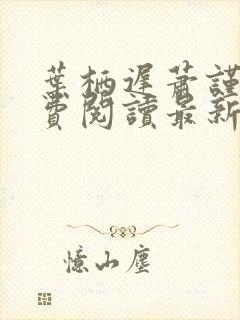 葉栖遲蕭謹
費閱讀最新
憶山塵